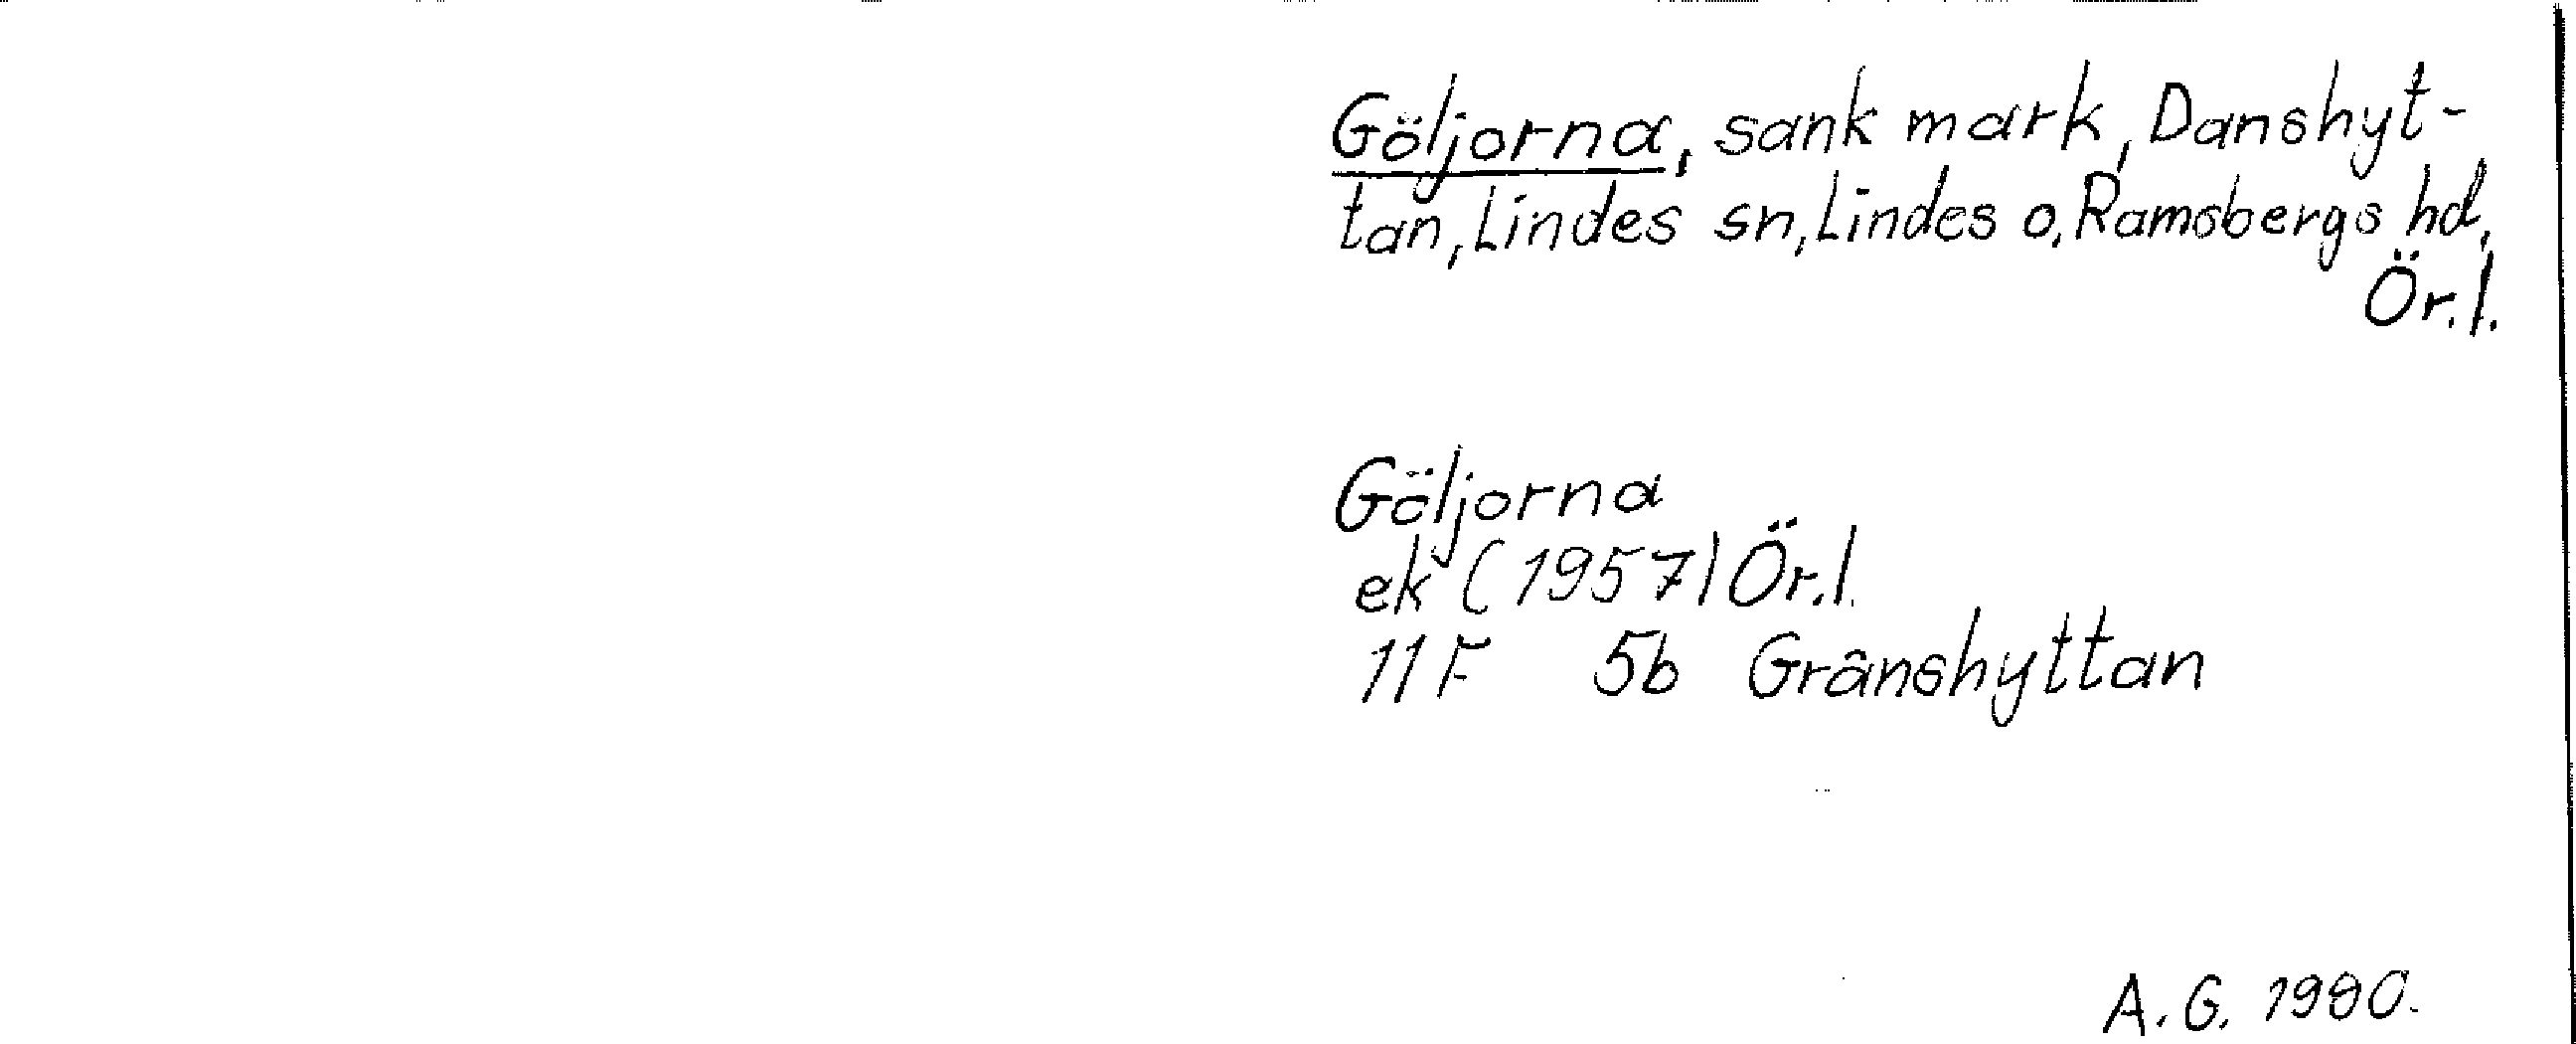 Göljorna, sank mark, Danshyt-
tan, Lindes sn, Lindes o, Ramsbergs hd,
Ör.l.
Göljorna
ek (1957) Ör.l.
11F 5b Grånshyttan
A.G. 1980.